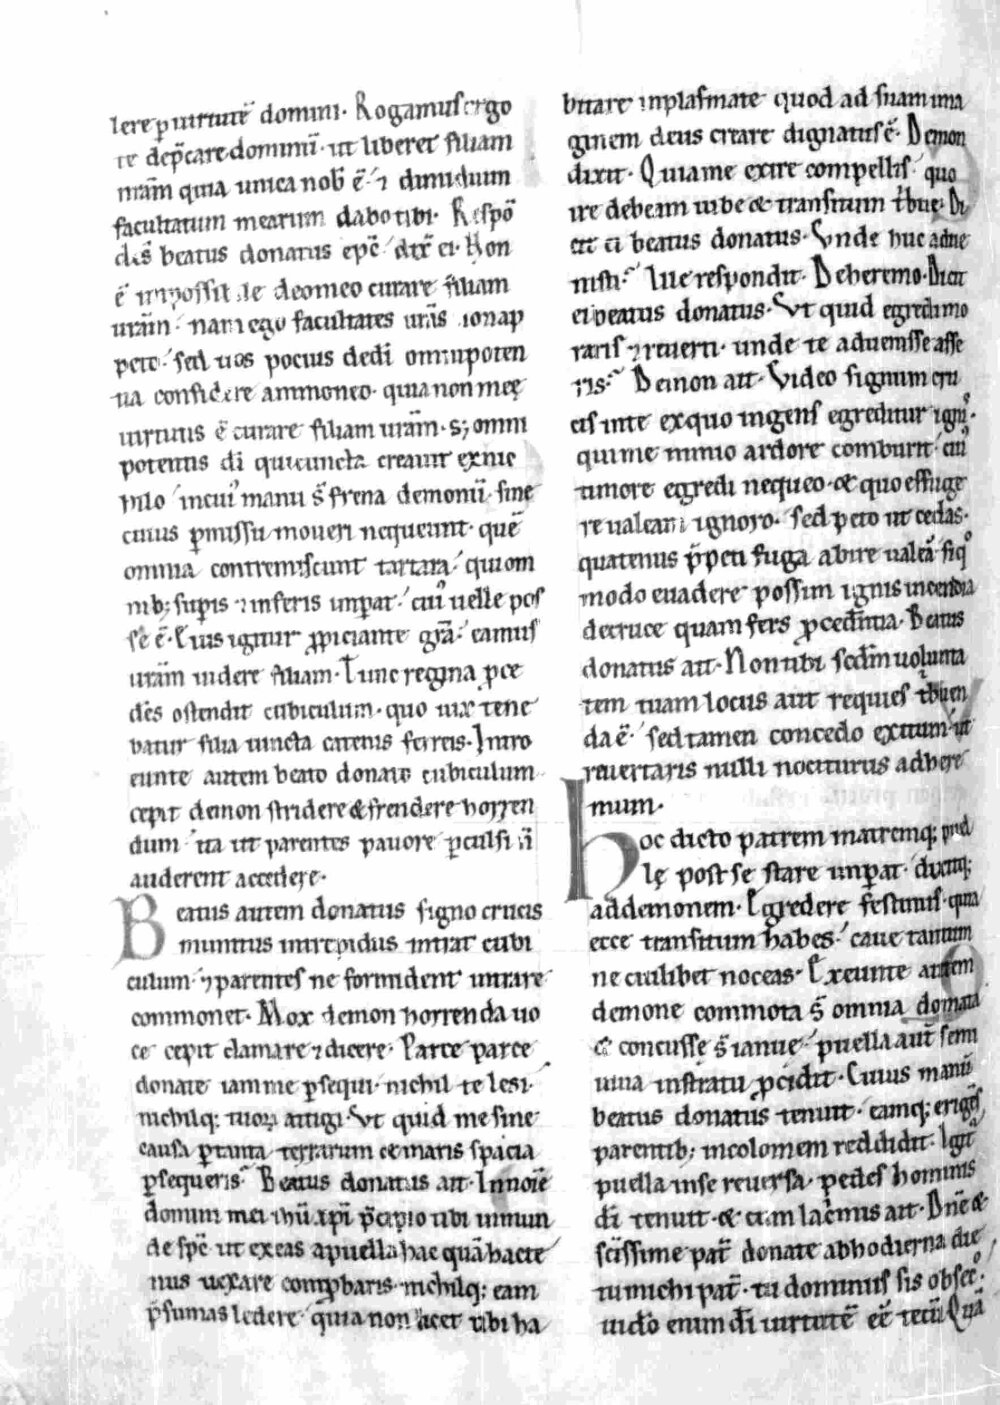 lere ꝑ uirtutē domini. Rogamus ergo
te dep̄care dominū. ut liberet filiam
nr̄am quia unica nob̄ ē. ⁊ dimidium
facultatum mearum dabo tibi. Respō
dis̄ beatus donatus ep̄c dix̄ ei. Non
ē impossibile deo meo curare filiam
urām. nam ego facultates urās non ap
peto. sed uos pocius dedi omnipoten
tia confidere ammoneo. quia non meę
uirtutis ē curare filiam urām. sꝫ omni
potentis dī qui cuncta creauit ex nic
hilo in cuiꝰ manu s̄ frena demoniū. sine
cuius ꝑmissu moueri nequeunt. quē
omnia contremiscunt tartara. qui om
nibꝫ supis ⁊ inferis imꝑat. cuiꝰ uelle pos
se ē. Eius igitur ꝓpiciante grā. eamus
urām uidere filiam. Tunc regina p̄ce
dēs ostendit cubiculum. quo uix tene
batur filia uincta catenis ferreis. Intro
eunte autem beato donato cubiculum
cepit demon stridere & frendere horren
dum ita ut parentes pauore ꝑculsi n̄
auderent accedere.
Beatus autem donatus signo crucis
munitus intrepidus intrat cubi
culum. ⁊ parentes ne formident intrare
commonet. Mox demon horrenda uo
ce cepit clamare ⁊ dicere. Parce parce
donate iam me ꝑsequi. nichil te lesi.
nichilqꝫ tuoꝝ attigi. Vt quid me sine
causa ꝑ tanta terrarum & maris spacia
ꝑsequeris. Beatus donatus ait. In noīe
domini mei ihū xp̄i p̄cipio tibi inmun
de sp̄c ut exeas a puella hac quā hacte
nus uexare comꝓbaris. nichilqꝫ eam
p̄sumas ledere quia non licet tibi ha
bitare in plasmate quod ad suam ima
ginem deus creare dignatus ē. Demon
dixit. Quia me exire compellis quo
ire debeam iube & transitum tribue. Di
cit ei beatus donatus. Vnde huc adue
nisti. Lue respondit. De heremo. Dicit
ei beatus donatus. Vt quid egredi mo
raris ⁊ reuerti unde te aduenisse asse
ris. Demon ait. Video signum cru
cis in te ex quo ingens egreditur igniꝰ.
qui me nimio ardore comburit. cuiꝰ
timore egredi nequeo. & quo effuge
re ualeam ignoro. Sed peto ut cedas.
quatenus p̄peti fuga abire ualeā. siqͦ
modo euadere possim ignis incendia
de cruce quam fers ꝓcedentia. Beatus
donatus ait. Non tibi secdm̄ uolunta
tem tuam locus aut requies tribuen
da ē. sed tamen concedo exitum. ut
reuertaris nulli nociturus ad here
mum.
Hoc dicto patrem matremqꝫ puel
lę post se stare imꝑat. dixitqꝫ
ad demonem. Egredere festinus quia
ecce transitum habes. caue tantum
ne cuilibet noceas. Exeunte autem
demone commota s̄ omnia domata
& concusse s̄ ianue. puella aut̄ semi
uiua in stratu ꝓcidit. Cuius manū
beatus donatus tenuit. eamqꝫ erigēs
parentibꝫ incolomem reddidit. Igit̄
puella in se reuersa. pedes hominis
dī tenuit. & cum lacrimis ait. Dn̄e &
scīssime pat̄ donate ab hodierna die
tu michi pat̄. tu dominus sis obsec̄.
uideo enim dī uirtutē eē tecū. Quā